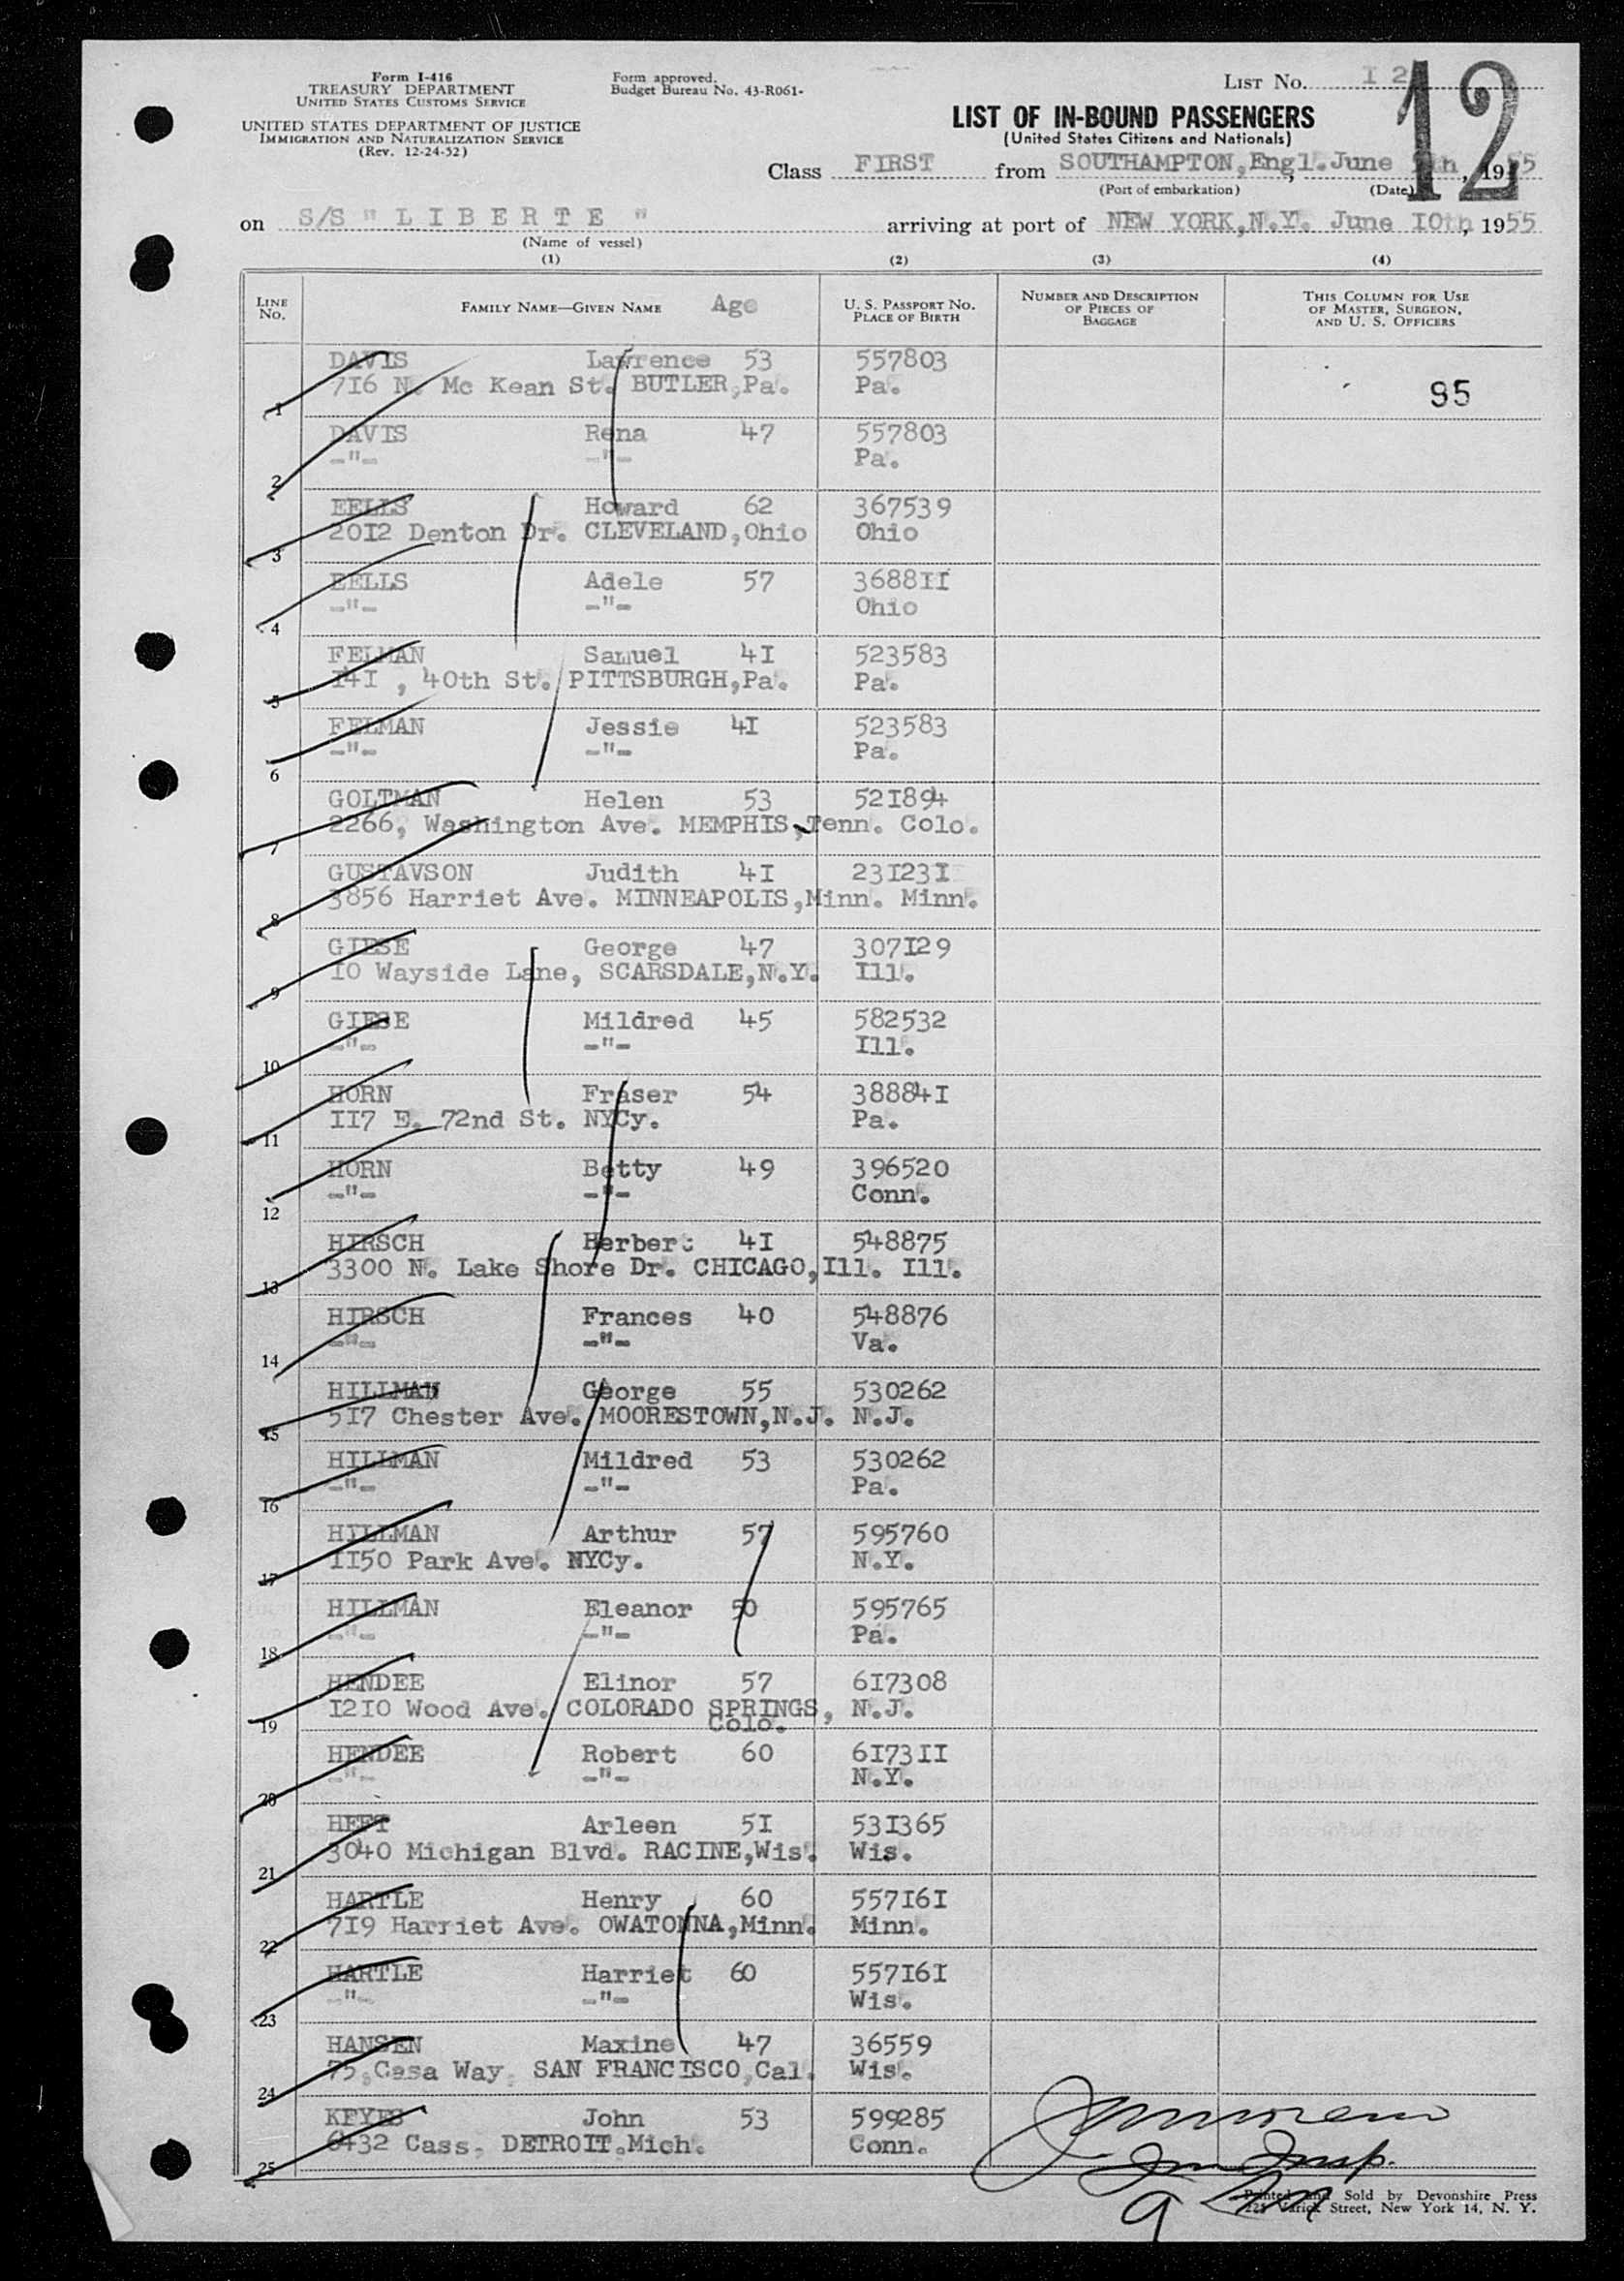 Form I-416
TREASURY DEPARTMENT
UNITED STATES CUSTOMS SERVICE
UNITED STATES DEPARTMENT OF JUSTICE
IMMIGRATION AND NATURALIZATION SERVICE
(Rev. 12-24-52)
Form approved.
Budget Bureau No. 43-R061-
LIST NO. I2
12
LIST OF IN-BOUND PASSENGERS
(United States Citizens and Nationals)
Class FIRST from SOUTHAMPTON,Engl. June , 1955
(Port of embarkation) (Date)
on S/S "LIBERTE" arriving at port of NEW YORK,N.Y. June IOth, 1955
(Name of vessel)
(1) (2) (3) (4)
LINE NO. FAMILY NAME—GIVEN NAME Age U. S. PASSPORT NO. PLACE OF BIRTH NUMBER AND DESCRIPTION OF PIECES OF BAGGAGE THIS COLUMN FOR USE OF MASTER, SURGEON, AND U. S. OFFICERS
DAVIS Lawrence 53 557803
1 716 N. Mc Kean St. BUTLER,Pa. Pa. 95
DAVIS Rena 47 557803
2 -"- -"- Pa.
EELLS Howard 62 367539
3 20I2 Denton Dr. CLEVELAND,Ohio Ohio
EELLS Adele 57 3688II
4 -"- -"- Ohio
FELMAN Samuel 4I 523583
5 I4I , 40th St. PITTSBURGH,Pa. Pa.
FELMAN Jessie 4I 523583
6 -"- -"- Pa.
GOLTMAN Helen 53 52I894
7 2266, Washington Ave. MEMPHIS,Tenn. Colo.
GUSTAVSON Judith 4I 23I23I
8 3856 Harriet Ave. MINNEAPOLIS,Minn. Minn.
GIESE George 47 307I29
9 IO Wayside Lane, SCARSDALE,N.Y. Ill.
GIESE Mildred 45 582532
10 -"- -"- Ill.
HORN Fraser 54 38884I
11 II7 E. 72nd St. NYCy. Pa.
HORN Betty 49 396520
12 -"- -"- Conn.
HIRSCH Herbert 4I 548875
13 3300 N. Lake Shore Dr. CHICAGO,Ill. Ill.
HIRSCH Frances 40 548876
14 -"- -"- Va.
HILLMAN George 55 530262
15 5I7 Chester Ave. MOORESTOWN,N.J. N.J.
HILLMAN Mildred 53 530262
16 -"- -"- Pa.
HILLMAN Arthur 57 595760
17 II50 Park Ave. NYCy. N.Y.
HILLMAN Eleanor 50 595765
18 -"- -"- Pa.
HENDEE Elinor 57 6I7308
19 I2I0 Wood Ave. COLORADO SPRINGS, N.J.
Colo.
HENDEE Robert 60 6I73II
20 -"- -"- N.Y.
HEFT Arleen 5I 53I365
21 3040 Michigan Blvd. RACINE,Wis. Wis.
HARTLE Henry 60 557I6I
22 7I9 Harriet Ave. OWATONNA,Minn. Minn.
HARTLE Harriet 60 557I6I
23 -"- -"- Wis.
HANSEN Maxine 47 36559
24 75,Casa Way, SAN FRANCISCO,Cal. Wis.
KEYES John 53 599285
25 6432 Cass, DETROIT.Mich. Conn.
Imm Insp.
Printed and Sold by Devonshire Press
225 Varick Street, New York 14, N. Y.